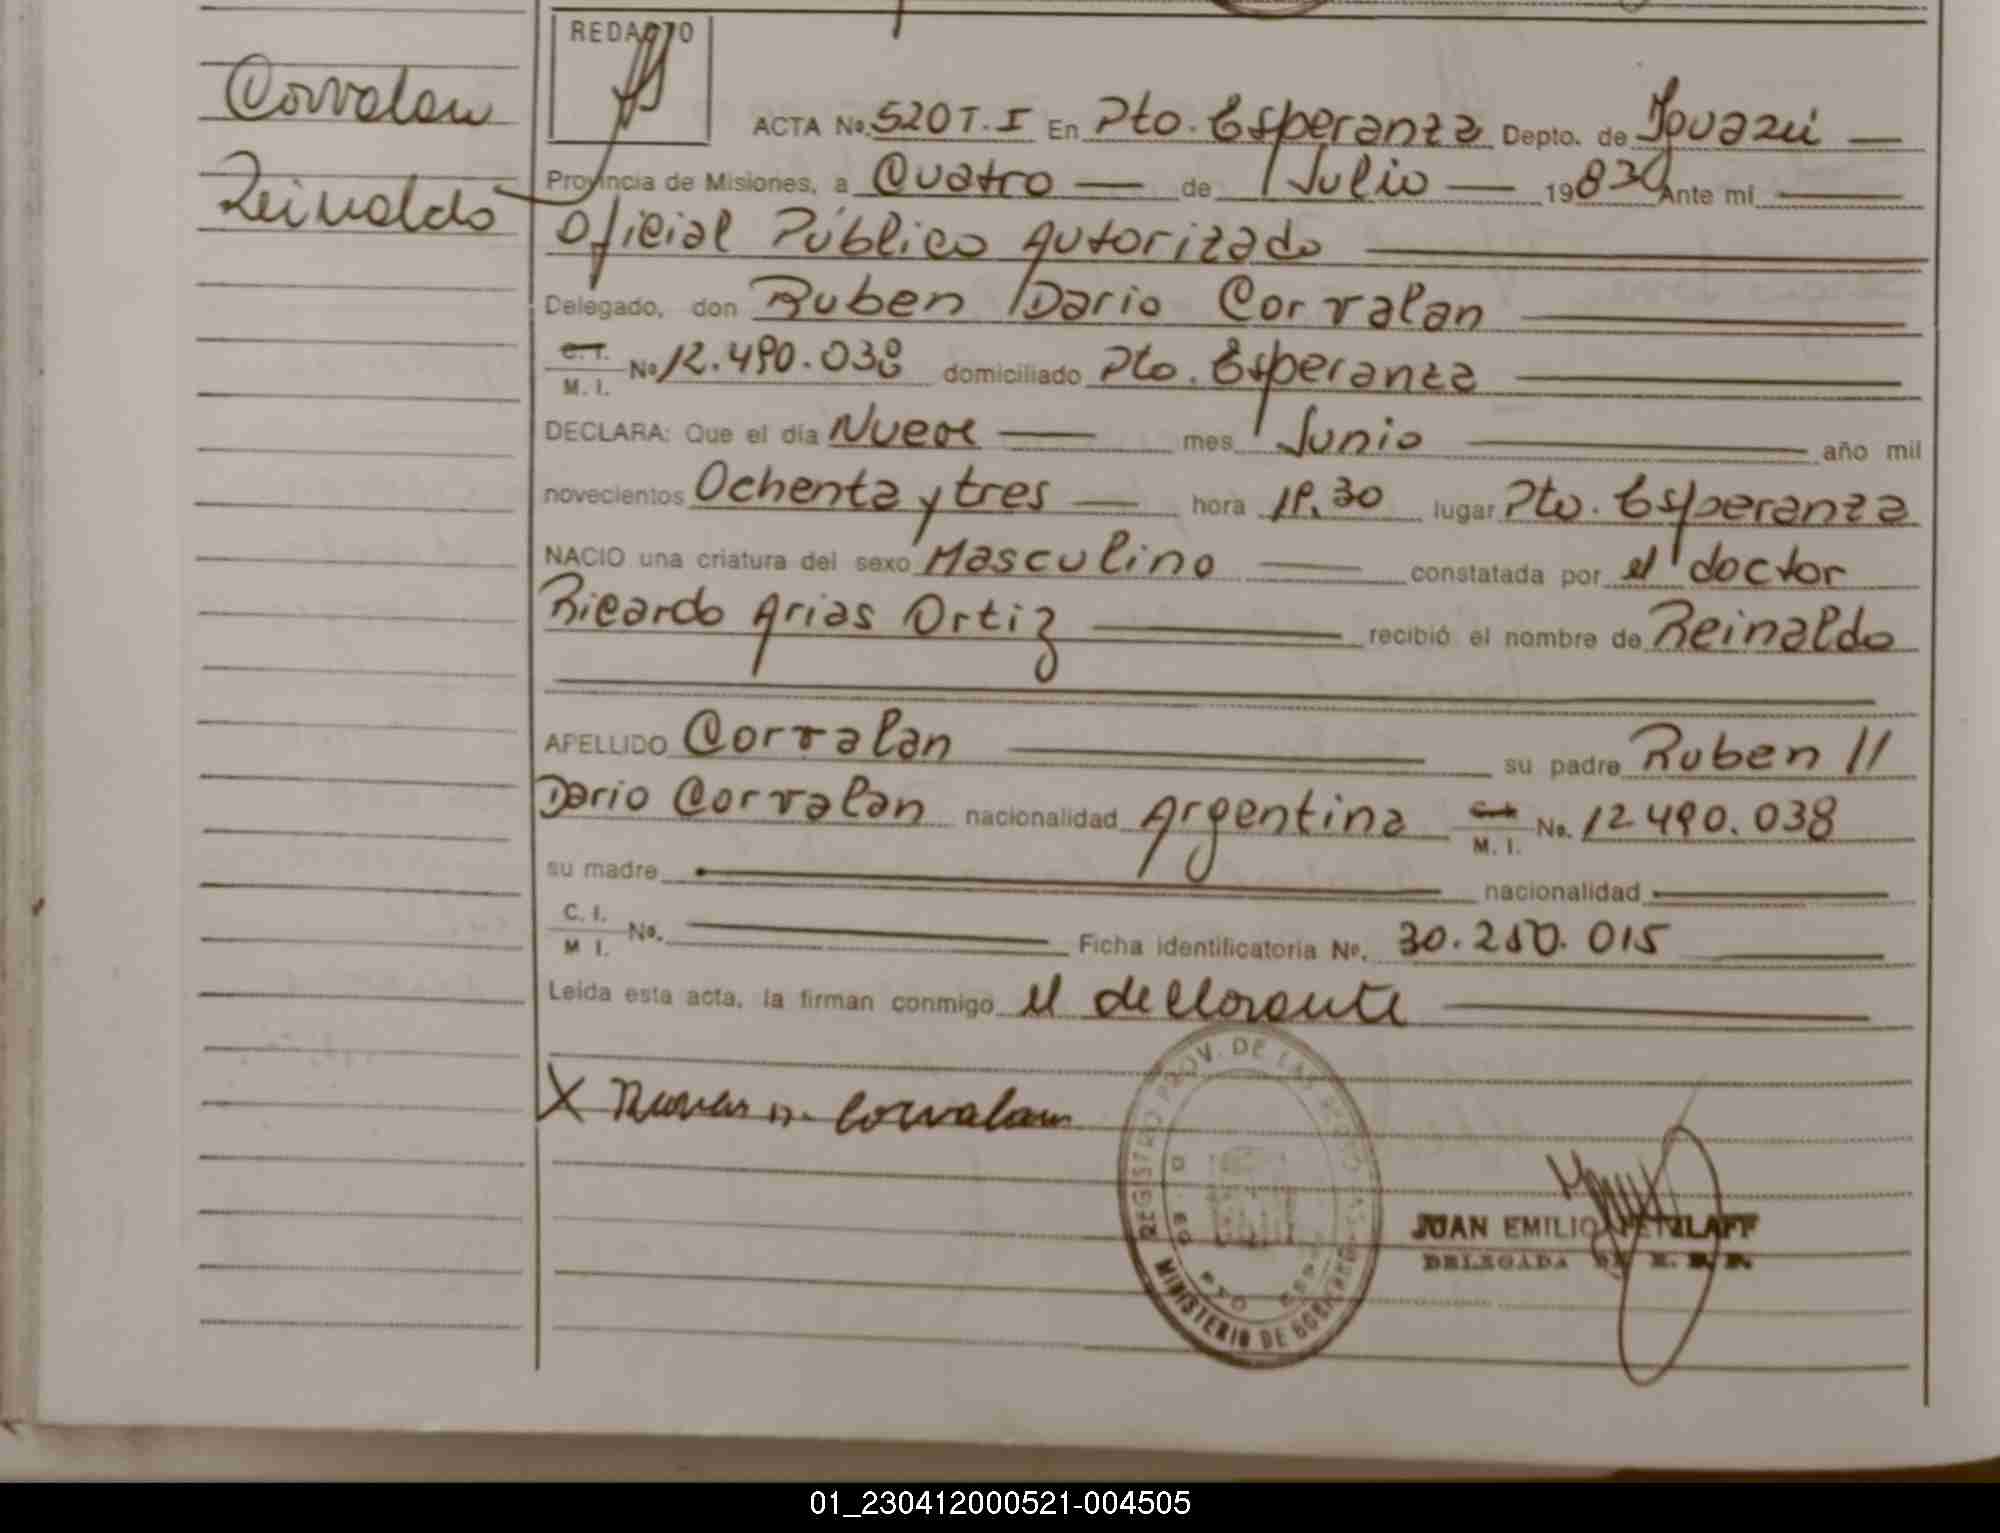 REDACTO
Corvalan
Reinaldo
ACTA No. 520 T. I En Pto. Esperanza Depto. de Iguazú
Provincia de Misiones, a Cuatro de Julio 1983 Ante mi
Oficial Público Autorizado
Delegado, don Ruben Dario Corvalan
C. I.
M. I. No 12.490.038 domiciliado Pto. Esperanza
DECLARA: Que el día Nueve mes Junio año mil
novecientos Ochenta y tres hora 19.30 lugar Pto. Esperanza
NACIO una criatura del sexo Masculino constatada por el doctor
Ricardo Arias Ortiz recibió el nombre de Reinaldo
APELLIDO Corvalan su padre Ruben //
Dario Corvalan nacionalidad Argentina M. I. No. 12.490.038
su madre nacionalidad
C. I.
M I. No. Ficha identificatoria No. 30.250.015
Leida esta acta, la firman conmigo el declarante
X Ruben D. Corvalan
REGISTRO PROV. DE LAS PERSONAS
MINISTERIO DE GOBIERNO
PTO ESP
JUAN EMILIO
DELEGADA
01_230412000521-004505